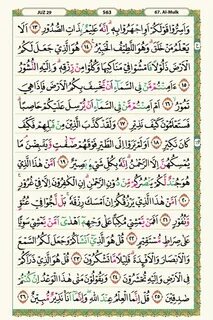 JUZ 29 563 67. Al-Mulk
وَاَسِرُّوْا قَوْلَكُمْ اَوِ اجْهَرُوْا بِهٖ اِنَّهٗ عَلِيْمٌۢ بِذَاتِ الصُّدُوْرِ ۱۳ اَلَا
يَعْلَمُ مَنْ خَلَقَ وَهُوَ اللَّطِيْفُ الْخَبِيْرُ ۱۴ هُوَ الَّذِيْ جَعَلَ لَكُمُ
الْاَرْضَ ذَلُوْلًا فَامْشُوْا فِيْ مَنَاكِبِهَا وَكُلُوْا مِنْ رِّزْقِهٖ وَاِلَيْهِ النُّشُوْرُ
۱۵ ءَاَمِنْتُمْ مَّنْ فِي السَّمَآءِ اَنْ يَّخْسِفَ بِكُمُ الْاَرْضَ فَاِذَا هِيَ
تَمُوْرُ ۱۶ اَمْ اَمِنْتُمْ مَّنْ فِي السَّمَآءِ اَنْ يُّرْسِلَ عَلَيْكُمْ حَاصِبًا
فَسَتَعْلَمُوْنَ كَيْفَ نَذِيْرِ ۱۷ وَلَقَدْ كَذَّبَ الَّذِيْنَ مِنْ قَبْلِهِمْ فَكَيْفَ
كَانَ نَكِيْرِ ۱۸ اَوَلَمْ يَرَوْا اِلَى الطَّيْرِ فَوْقَهُمْ صٰٓفّٰتٍ وَّيَقْبِضْنَ مَا
يُمْسِكُهُنَّ اِلَّا الرَّحْمٰنُ اِنَّهٗ بِكُلِّ شَيْءٍۭ بَصِيْرٌ ۱۹ اَمَّنْ هٰذَا الَّذِيْ
هُوَ جُنْدٌ لَّكُمْ يَنْصُرُكُمْ مِّنْ دُوْنِ الرَّحْمٰنِ اِنِ الْكٰفِرُوْنَ اِلَّا فِيْ غُرُوْرٍ
۲۰ اَمَّنْ هٰذَا الَّذِيْ يَرْزُقُكُمْ اِنْ اَمْسَكَ رِزْقَهٗ بَلْ لَّجُّوْا فِيْ عُتُوٍّ
وَّنُفُوْرٍ ۲۱ اَفَمَنْ يَّمْشِيْ مُكِبًّا عَلٰى وَجْهِهٖٓ اَهْدٰٓى اَمَّنْ يَّمْشِيْ سَوِيًّا
عَلٰى صِرَاطٍ مُّسْتَقِيْمٍ ۲۲ قُلْ هُوَ الَّذِيْٓ اَنْشَاَكُمْ وَجَعَلَ لَكُمُ السَّمْعَ
وَالْاَبْصَارَ وَالْاَفْـِٕدَةَ قَلِيْلًا مَّا تَشْكُرُوْنَ ۲۳ قُلْ هُوَ الَّذِيْ ذَرَاَكُمْ
فِي الْاَرْضِ وَاِلَيْهِ تُحْشَرُوْنَ ۲۴ وَيَقُوْلُوْنَ مَتٰى هٰذَا الْوَعْدُ اِنْ كُنْتُمْ
صٰدِقِيْنَ ۲۵ قُلْ اِنَّمَا الْعِلْمُ عِنْدَ اللّٰهِ وَاِنَّمَآ اَنَا نَذِيْرٌ مُّبِيْنٌ ۲۶